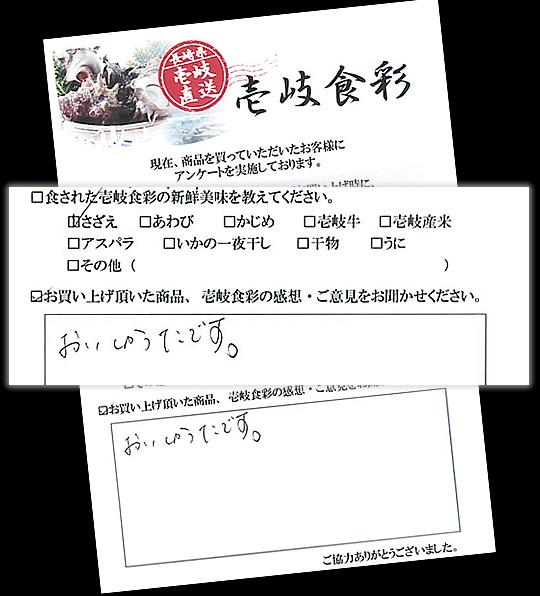 長崎県
壱岐
直送
壱岐食彩
現在、商品を買っていただいたお客様に
アンケートを実施しております。
い上げ時に、
□食された壱岐食彩の新鮮美味を教えてください。
☑さざえ □あわび □かじめ □壱岐牛 □壱岐産米
□アスパラ □いかの一夜干し □干物 □うに
□その他（ ）
☑お買い上げ頂いた商品、壱岐食彩の感想・ご意見をお聞かせください。
おいしゅうたごです。
☑お買い上げ頂いた商品、壱岐食彩の感想・ご意見をお聞
おいしゅうたごです。
ご協力ありがとうございました。